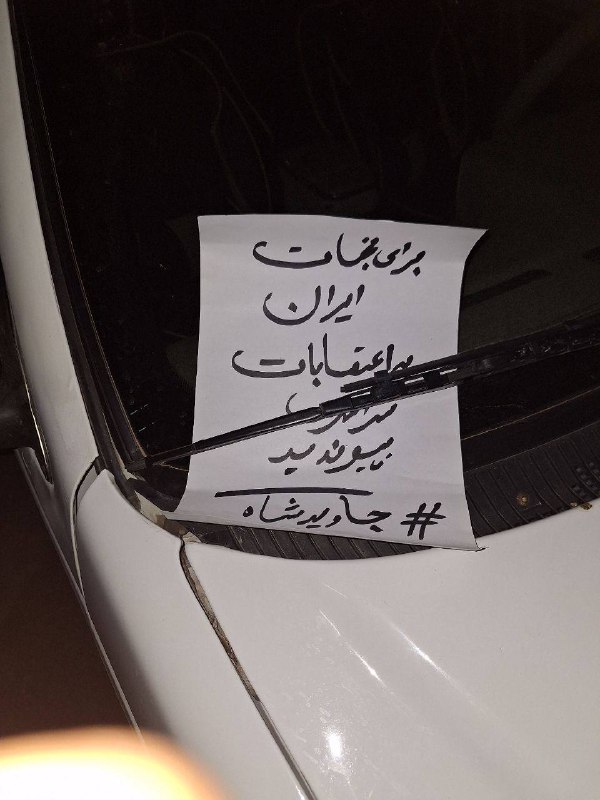 برای نجات
ایران
به اعتصابات
بپیوندید
# جاویدشاه